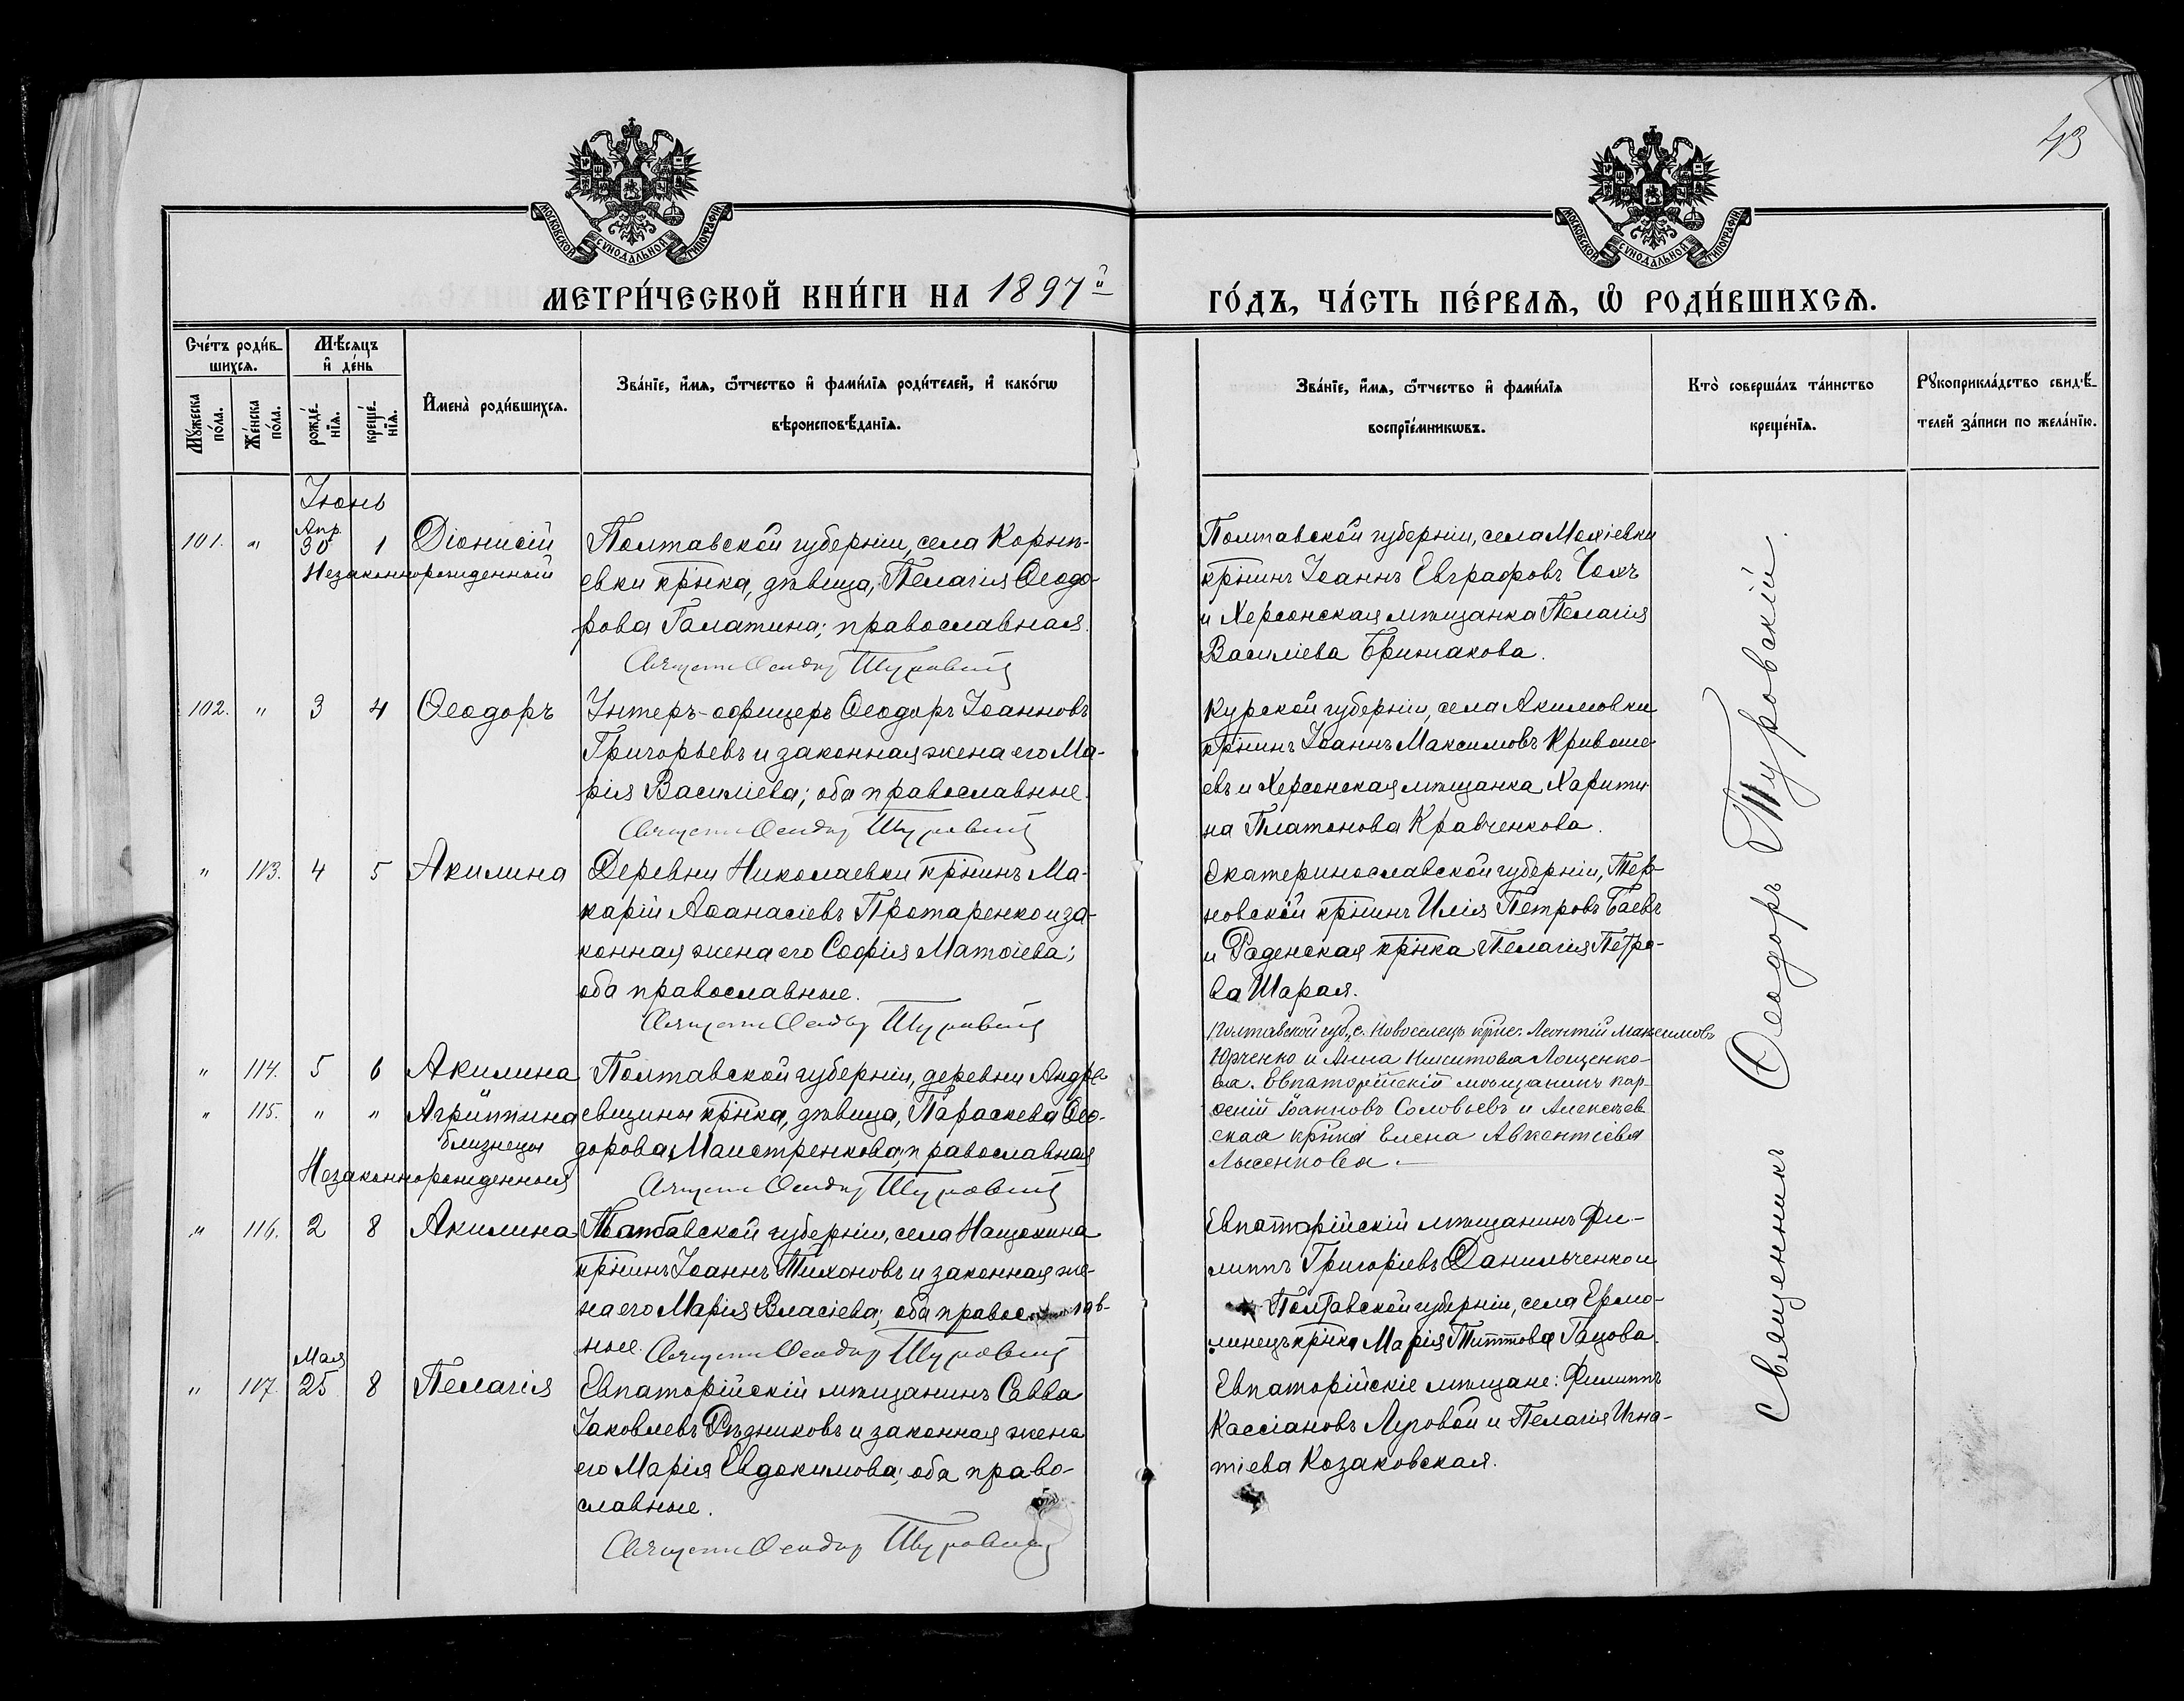 43
МОСКОВСКОЙ СУНОДАЛЬНОЙ ТИПОГРАФІИ
МОСКОВСКОЙ СУНОДАЛЬНОЙ ТИПОГРАФІИ
МЕТРИ́ЧЕСКОЙ КНИ́ГИ НА 1897й
ГО́ДЪ, ЧА́СТЬ ПЕ́РВАѦ, Ѡ҆ РОДИ́ВШИХСѦ.
Сче́тъ роди́в-
шихсѧ.
Мѣ́сяцъ
и҆ де́нь
Мꙋ́жеска по́ла.
Же́нска по́ла.
рожде́-
нїѧ.
креще́-
нїѧ.
И҆мена̀ роди́вшихсѧ.
Зва́нїе, и҆́мѧ, ѻ҆́тчество и҆ фами́лїѧ роди́телей, и҆ како́гѡ
вѣроисповѣ́данїѧ.
Зва́нїе, и҆́мѧ, ѻ҆́тчество и҆ фами́лїѧ
воспрїе́мникѡвъ.
Кто̀ соверша́лъ та́инство
креще́нїѧ.
Рꙋкоприкла́дство свидѣ́-
телей за́писи по жела́нїю.
Іюнь
101. " Апр. 30 1 Діонисій
Незаконнорожденный
Полтавской губерніи, села Корнѣ-
евки кр҃нка, дѣвица, Пелагія Ѳеодо-
рова Галатина; православная.
Священ Ѳеодор Туровскій
Полтавской губерніи, села Мохіевки
кр҃нинъ Іоаннъ Евграфовъ Чохъ
и Херсонская мѣщанка Пелагія
Василіева Бришакова.
102. " 3 4 Ѳеодоръ
Унтеръ-офицеръ Ѳеодоръ Іоанновъ
Григорьевъ и законная жена его Ма-
рія Василіева; оба православные.
Священ Ѳеодор Туровскій
Курской губерніи, села Акимовки
кр҃нинъ Іоаннъ Максимовъ Кривоше-
евъ и Херсонская мѣщанка Харити-
на Платонова Кравченкова.
" 113. 4 5 Акилина
Деревни Николаевки кр҃нинъ Ма-
карій Аѳанасіевъ Протаренко и за-
конная жена его Софія Матѳіева;
оба православные.
Священ Ѳеодор Туровскій
Екатеринославской губерніи, Тер-
новской кр҃нинъ Илія Петровъ Баевъ
и Раденская кр҃нка Пелагія Петро-
ва Шарая.
" 114. 5 6 Акилина
" 115. " " Агриппина
близнецы
Незаконнорожденныя
Полтавской губерніи, деревни Андре-
евщины кр҃нка, дѣвица, Параскева Ѳео-
дорова Маистренкова; православная
Священ Ѳеодор Туровскій
Полтавской губ., с. Новоселецъ крес. Леонтій Максимовъ
Юрченко и Анна Никитова Лощенко-
ва. Евпаторійскій мѣщанинъ Пар-
ѳеній Іоанновъ Соловьевъ и Алексѣев-
ская кр҃нка Елена Авкентіева
Лысенкова.
" 116. 2 8 Акилина
Тамбавской губерніи, села Нащокина
кр҃нинъ Іоаннъ Тихоновъ и законная же-
на его Марія Власіева; оба православ-
ные. Священ Ѳеодор Туровскій
Евпаторійскій мѣщанинъ Фи-
липпъ Григоріевъ Данильченко и
Полтавской губерніи, села Ермо-
линецъ кр҃нка Марія Титтова Гацова.
" 117. Мая 25 8 Пелагія
Евпаторійскій мѣщанинъ Савва
Іаковлевъ Рѣзниковъ и законная жена
его Марія Евдокимова; оба право-
славные.
Священ Ѳеодор Туровскій
Евпаторійскіе мѣщане: Филиппъ
Кассіановъ Луговой и Пелагія Игна-
тіева Козаковская.
Священникъ Ѳеодоръ Туровскій.